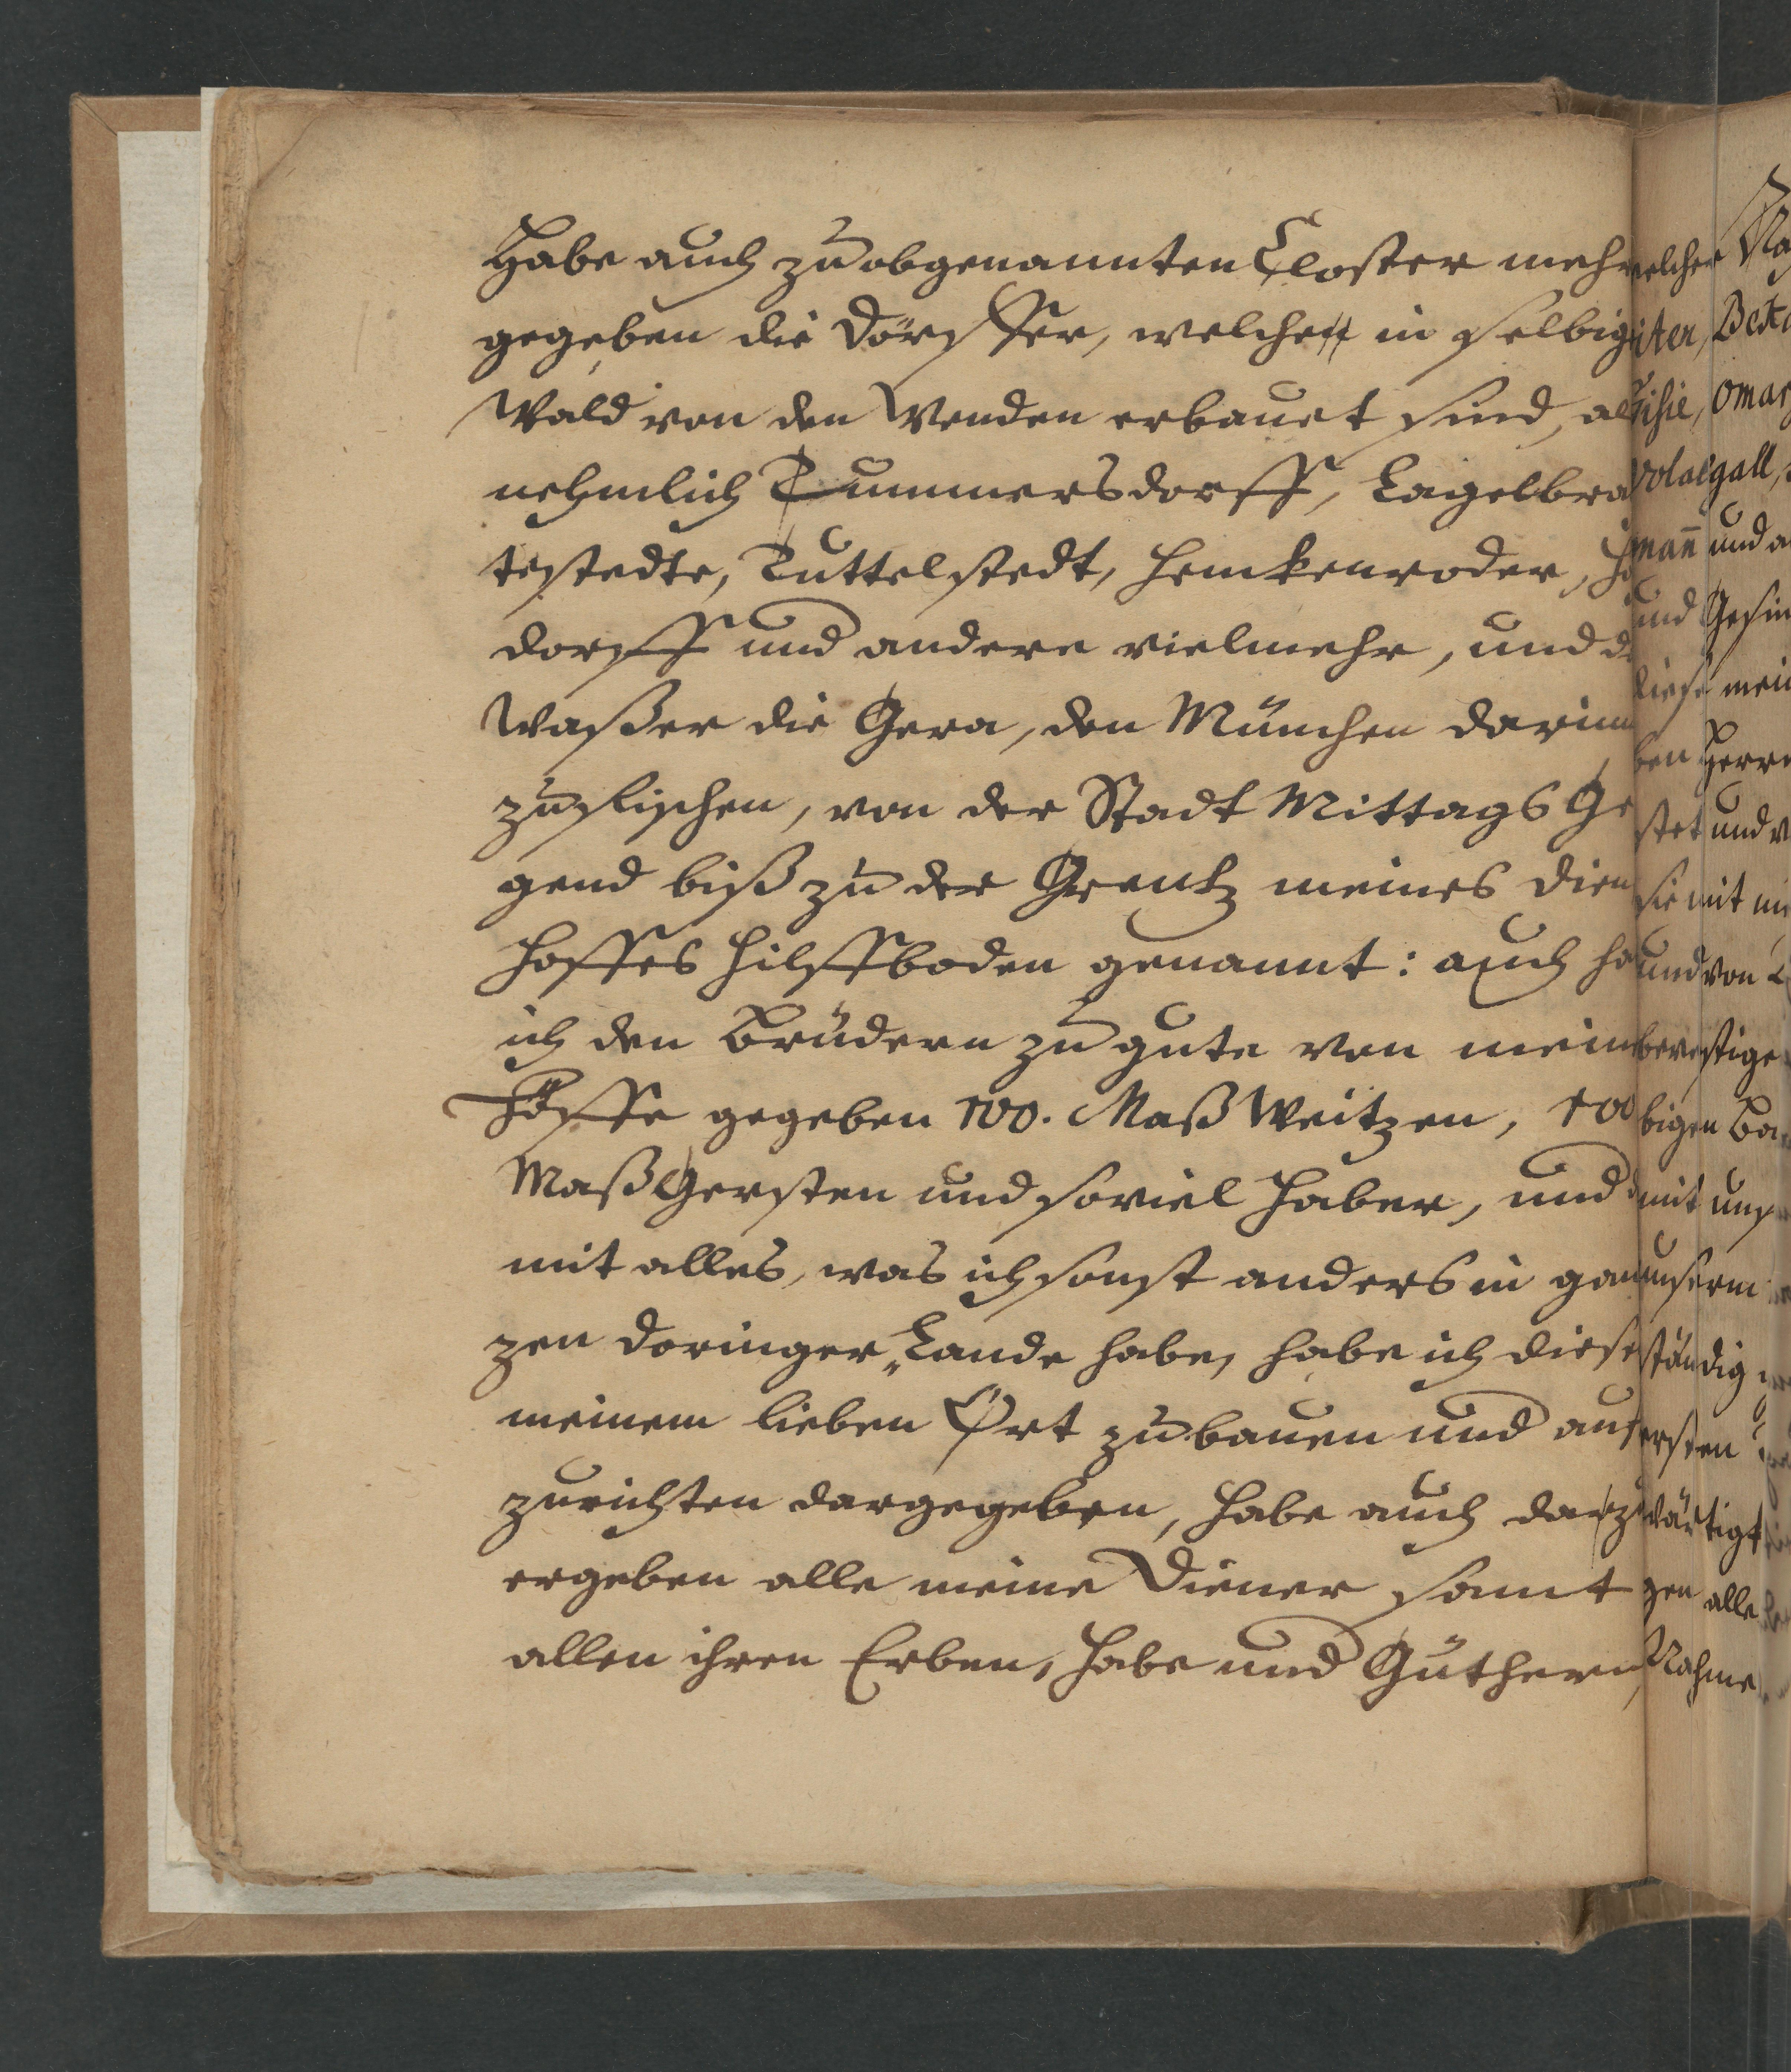 Habe auch zu obgenannten Closter mehr
gegeben die Dörffer, welche in selbig
Wald von den Wenden erbauet sind, als
nehmlich Tummersdorff, Tagelbra
testedte, Tuttelstedt, Hemkenroder,
dorff und andere vielmehr, und d
Waßer die Gera, den München darinn
zu fischen, von der Stadt Mittags Ge
gend biß zu der Grentz meines Dien
Hoffes Hilffboden genannt: auch ha
ich den Brüdern zu gute von mein
Höffe gegeben 100. Maß Weitzen, 100
Maß Gersten und soviel Haber, und d
mit alles, was ich sonst anders in gan
zen Doringer Lande habe, habe ich diese
meinem lieben Ort zu bauen und auf
zurichten dargegeben, habe auch darzu
ergeben alle meine Diener samt
allen ihren Erben, Habe und Güthern,
welcher
Omar
Volalgall,
mañ und a
und Gesin
diese mein
ben Herrn
stet und v
sie mit
und von
bevestige
bigen
mit uns
unserm
ständig
ersten
wärtigt
gen alle
Nahme